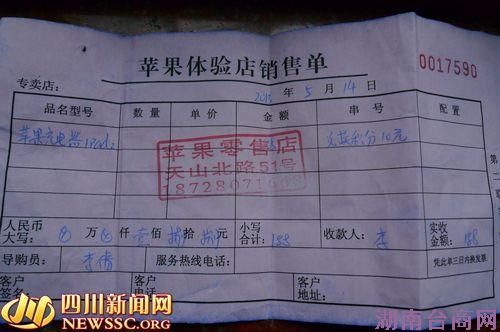 苹果体验店销售单
0017590
专卖店：
2013 年 5 月 14 日
品名型号 数量 单价 金额 串号 配置
苹果充电器 iPad2 兑换积分10元
苹果零售店
天山北路51号
人民币大写： 万 仟 壹佰 捌拾 捌元 小写合计：188 收款人：李 实收金额：188
导购员：李倩 服务热线电话： 凭此单三日内换发票
客户签名： 客户地址：
四川新闻网
NEWSSC.ORG
湖南台商网